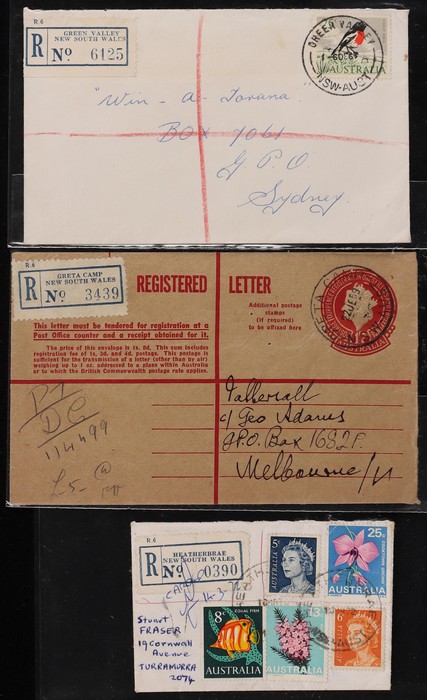 R.6
GREEN VALLEY
NEW SOUTH WALES
R No 6125
GREEN VALLEY
AUSTRALIA
NSW-AUST
"Win - A - Torana
BOX 7061
G.P.O.
Sydney.
R.6
GRETA CAMP
NEW SOUTH WALES
R No 3439
REGISTERED LETTER
This letter must be tendered for registration at a
Post Office counter and a receipt obtained for it.
The price of this envelope is 1s. 6d. This sum includes
registration fee of 1s. 3d. and 4d. postage. This postage is
sufficient for the transmission of a letter (other than by air)
weighing up to 1 oz. addressed to a place within Australia
or to which the British Commonwealth postage rate applies.
Additional postage
stamps
(if required)
to be affixed here
AUSTRALIA
DC
114499
£5-
Tattersall
c/ Geo Adams
G.P.O. Box 1682P.
Melbourne
R.6
HEATHERBRAE
NEW SOUTH WALES
R No 0390
5c
AUSTRALIA
25c
AUSTRALIA
Stuart
FRASER
19 Cornwall
Avenue
TURRAMURRA
2074
8c
CORAL FISH
AUSTRALIA
13c
AUSTRALIA
6c
AUSTRALIA